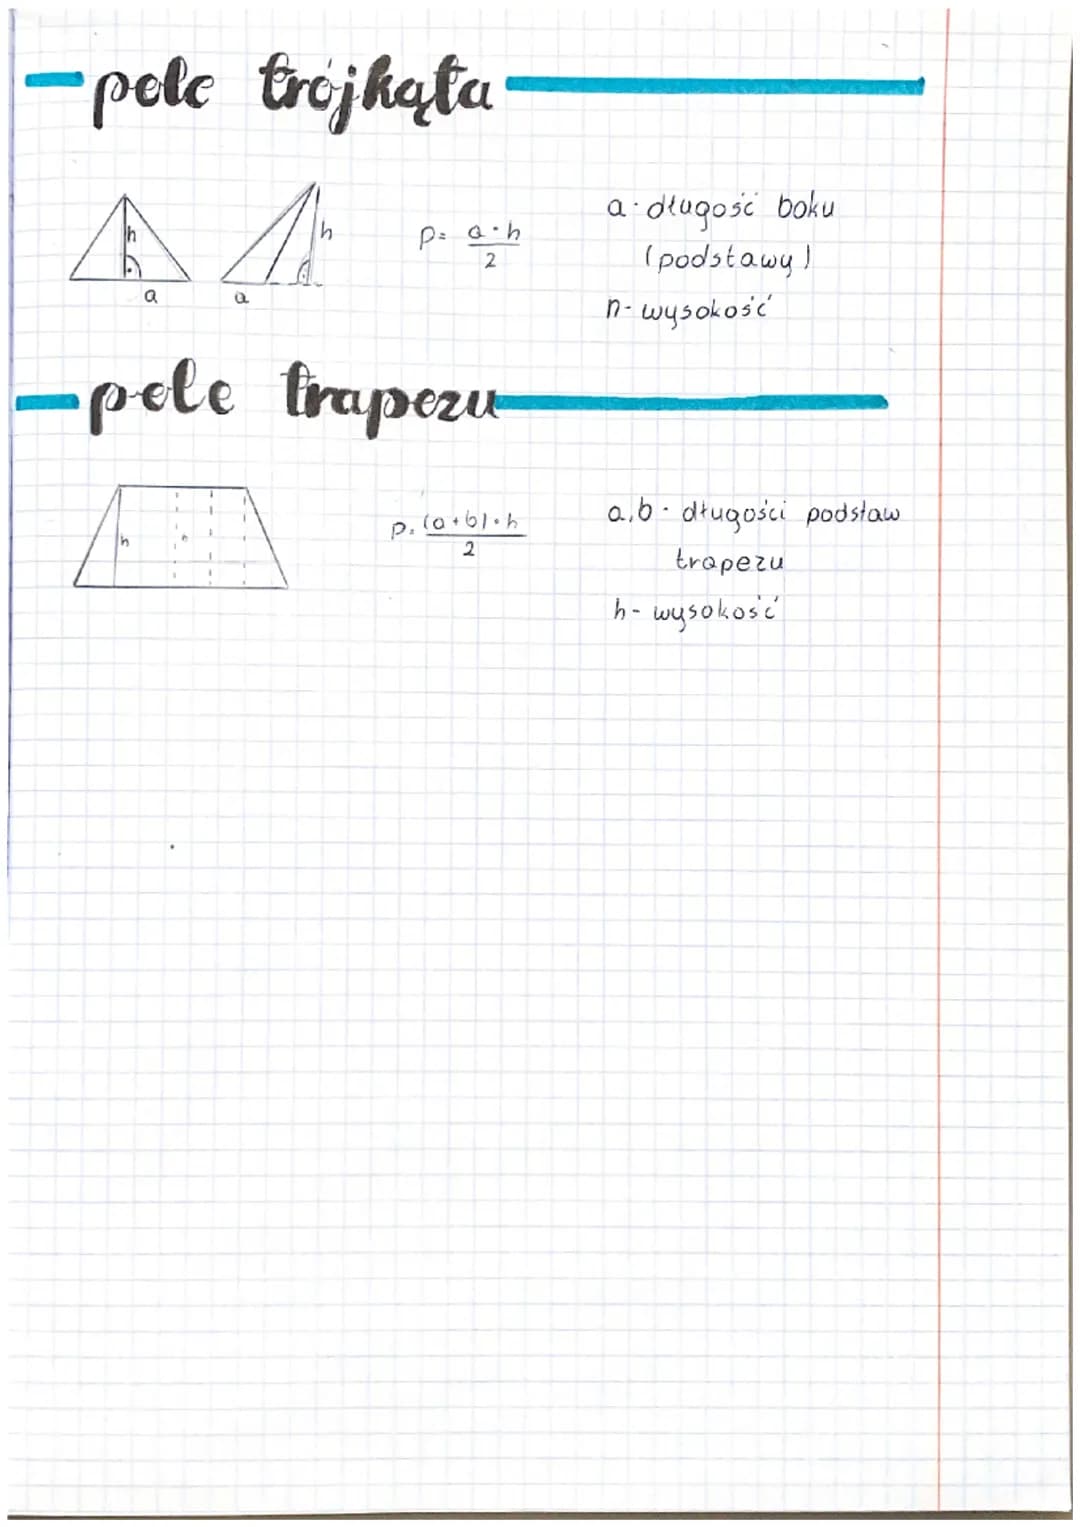 pole trójkąta
h
a
h
a
P= a·h
2
a - długość boku
(podstawy)
n - wysokość
pole trapezu
h
h
P= (a+b)·h
2
a,b - długości podstaw
trapezu
h - wysokość